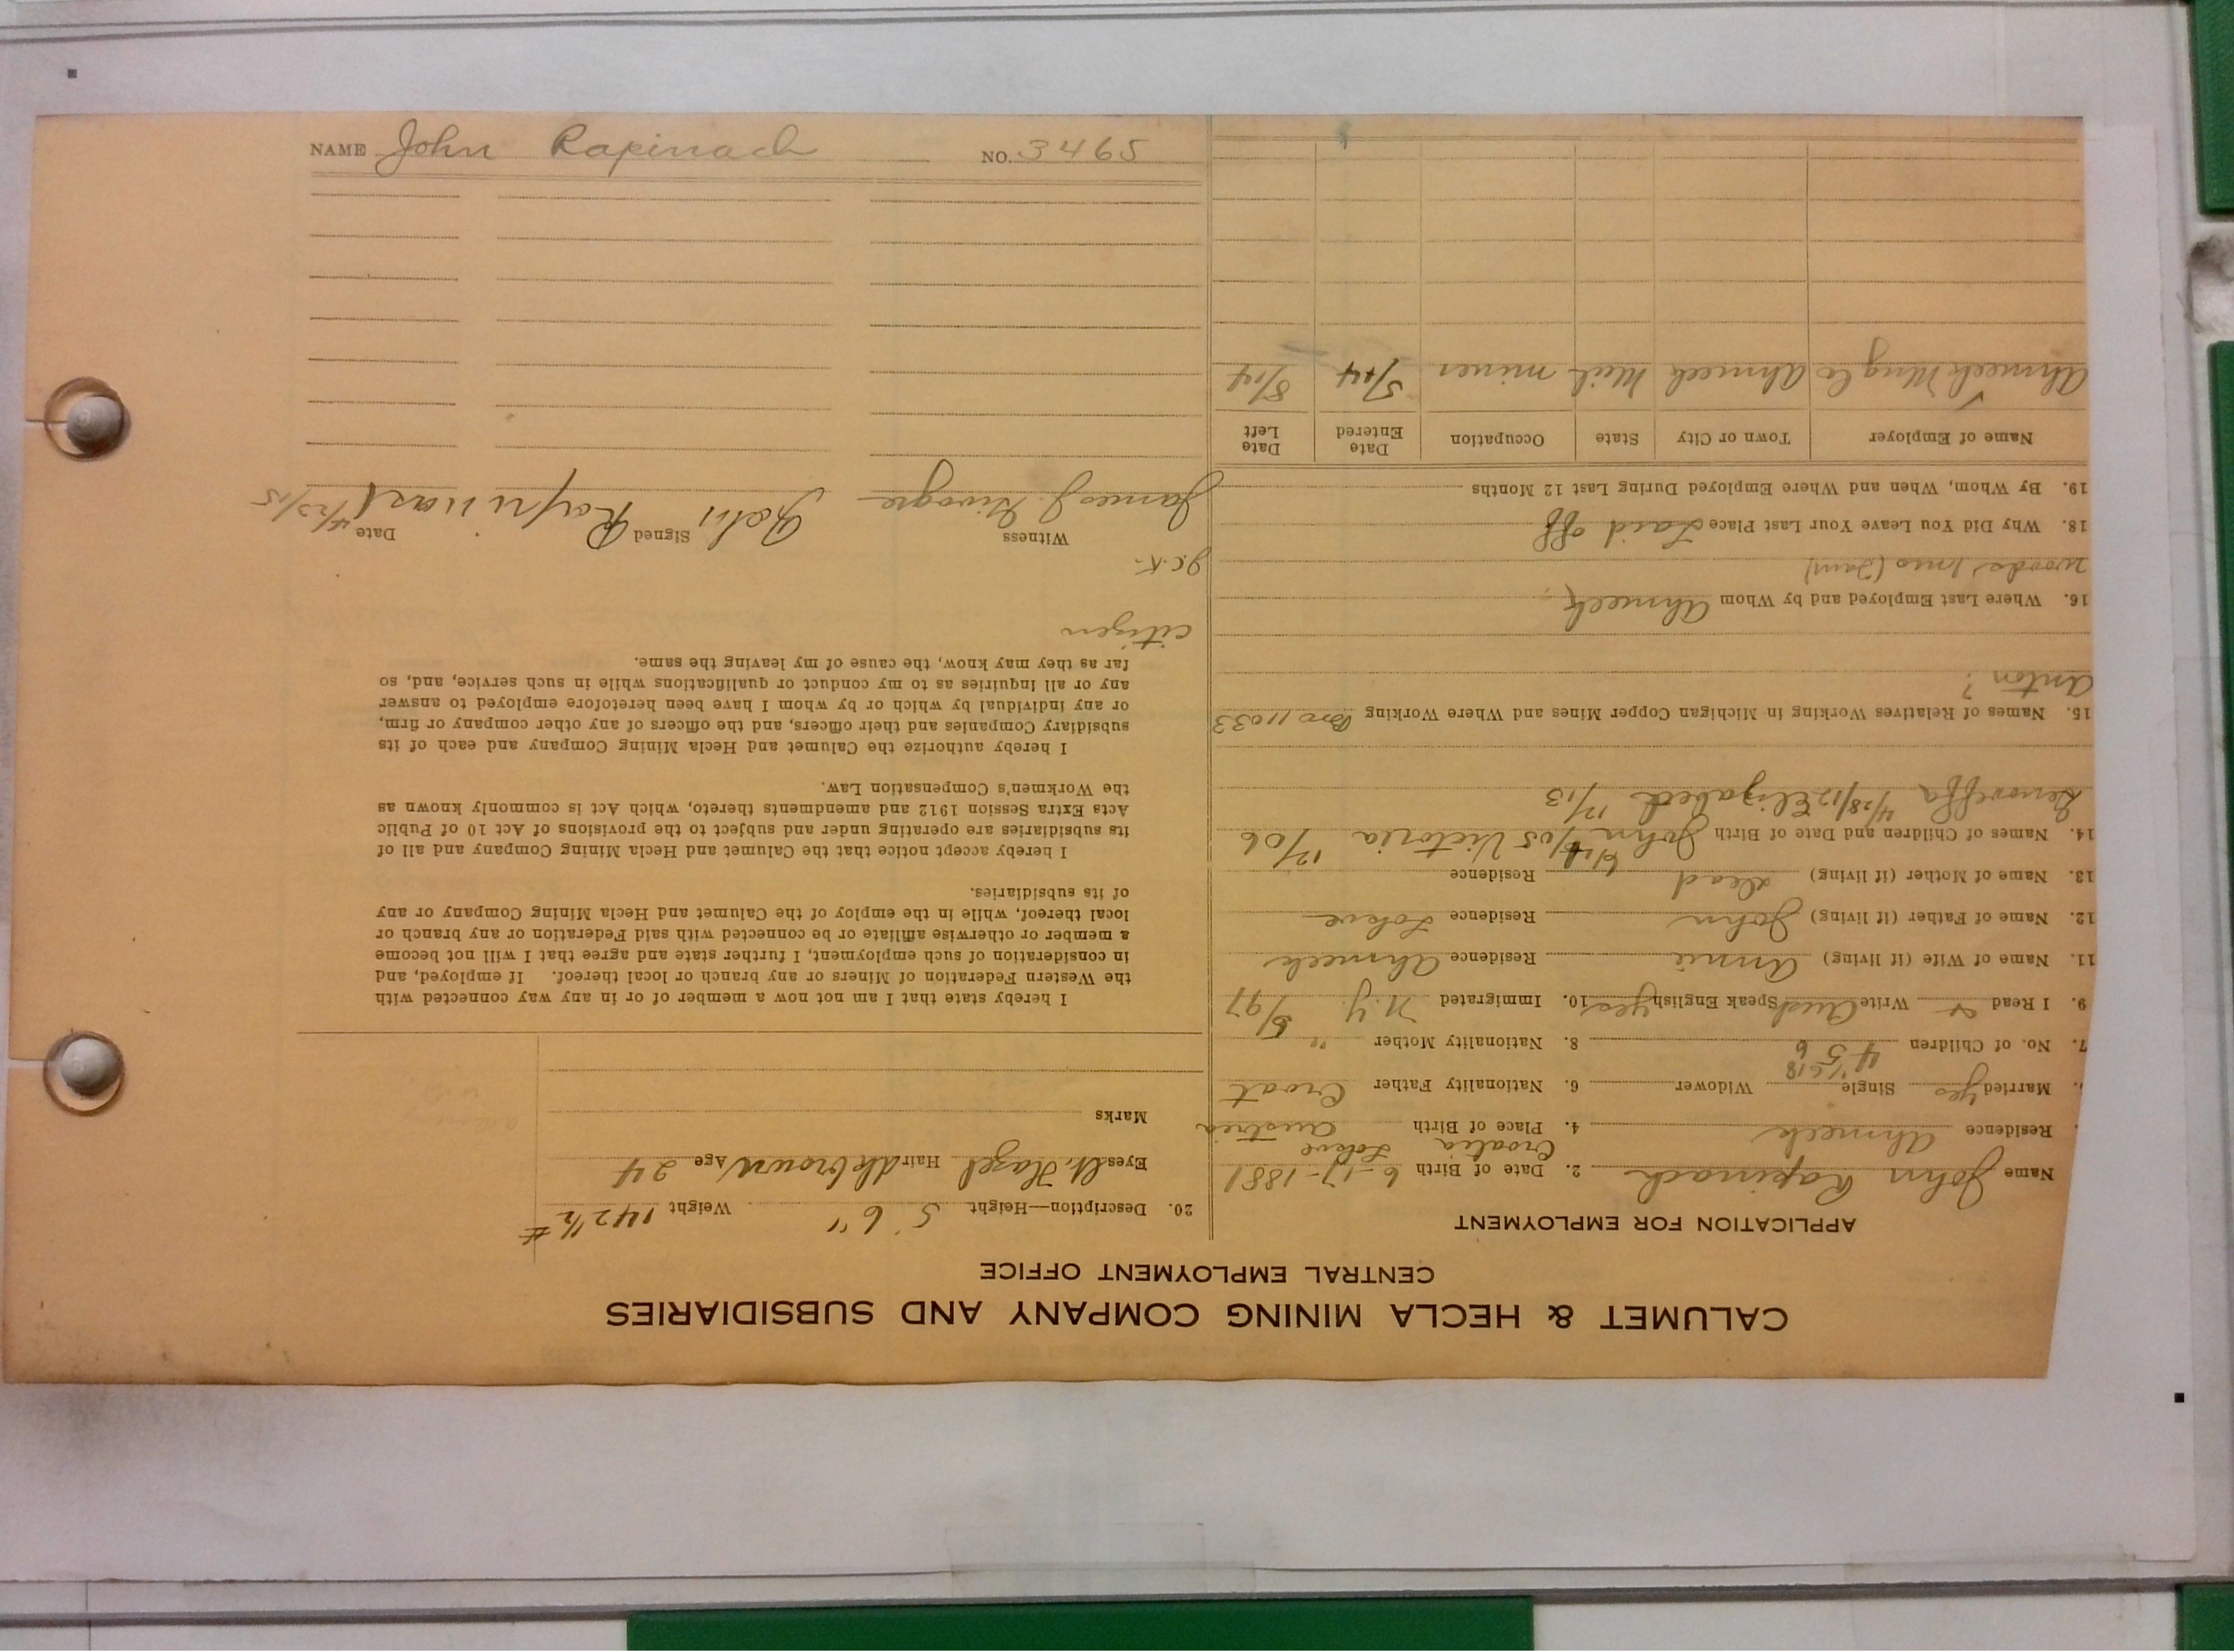 CALUMET & HECLA MINING COMPANY AND SUBSIDIARIES
CENTRAL EMPLOYMENT OFFICE
APPLICATION FOR EMPLOYMENT
Name John Rapinach 2. Date of Birth 6-17-1881
Croatia Lokve
Residence Ahmeek 4. Place of Birth Austria
Married yes Single Widower 6. Nationality Father Croat
7. No. of Children 4 5 6 8. Nationality Mother "
9. I Read & Write Aust Speak English yes 10. Immigrated N.Y. 5/97
11. Name of Wife (if living) Annie Residence Ahmeek
12. Name of Father (if living) John Residence Lokve
13. Name of Mother (if living) Dead Residence
14. Names of Children and Date of Birth John /05 Victoria 12/06
4/28/12 Elizabeth 12/13
15. Names of Relatives Working in Michigan Copper Mines and Where Working Bro 11033
Anton?
16. Where Last Employed and by Whom Ahmeek
woods
18. Why Did You Leave Your Last Place Laid off
19. By Whom, When and Where Employed During Last 12 Months
Name of Employer Town or City State Occupation Date Entered Date Left
Ahmeek Mng Co Ahmeek Mich miner 5/14 8/14
20. Description—Height 5' 6" Weight 142 1/2 #
Eyes Lt. Hazel Hair dk brown Age 24
Marks
I hereby state that I am not now a member of or in any way connected with
the Western Federation of Miners or any branch or local thereof. If employed, and
in consideration of such employment, I further state and agree that I will not become
a member or otherwise affiliate or be connected with said Federation or any branch or
local thereof, while in the employ of the Calumet and Hecla Mining Company or any
of its subsidiaries.
I hereby accept notice that the Calumet and Hecla Mining Company and all of
its subsidiaries are operating under and subject to the provisions of Act 10 of Public
Acts Extra Session 1912 and amendments thereto, which Act is commonly known as
the Workmen's Compensation Law.
I hereby authorize the Calumet and Hecla Mining Company and each of its
subsidiary Companies and their officers, and the officers of any other company or firm,
or any individual by which or by whom I have been heretofore employed to answer
any or all inquiries as to my conduct or qualifications while in such service, and, so
far as they may know, the cause of my leaving the same.
citizen
J.C.K.
Witness Signed Date
James J. John 4/23/15
NAME John Rapinach NO. 3465